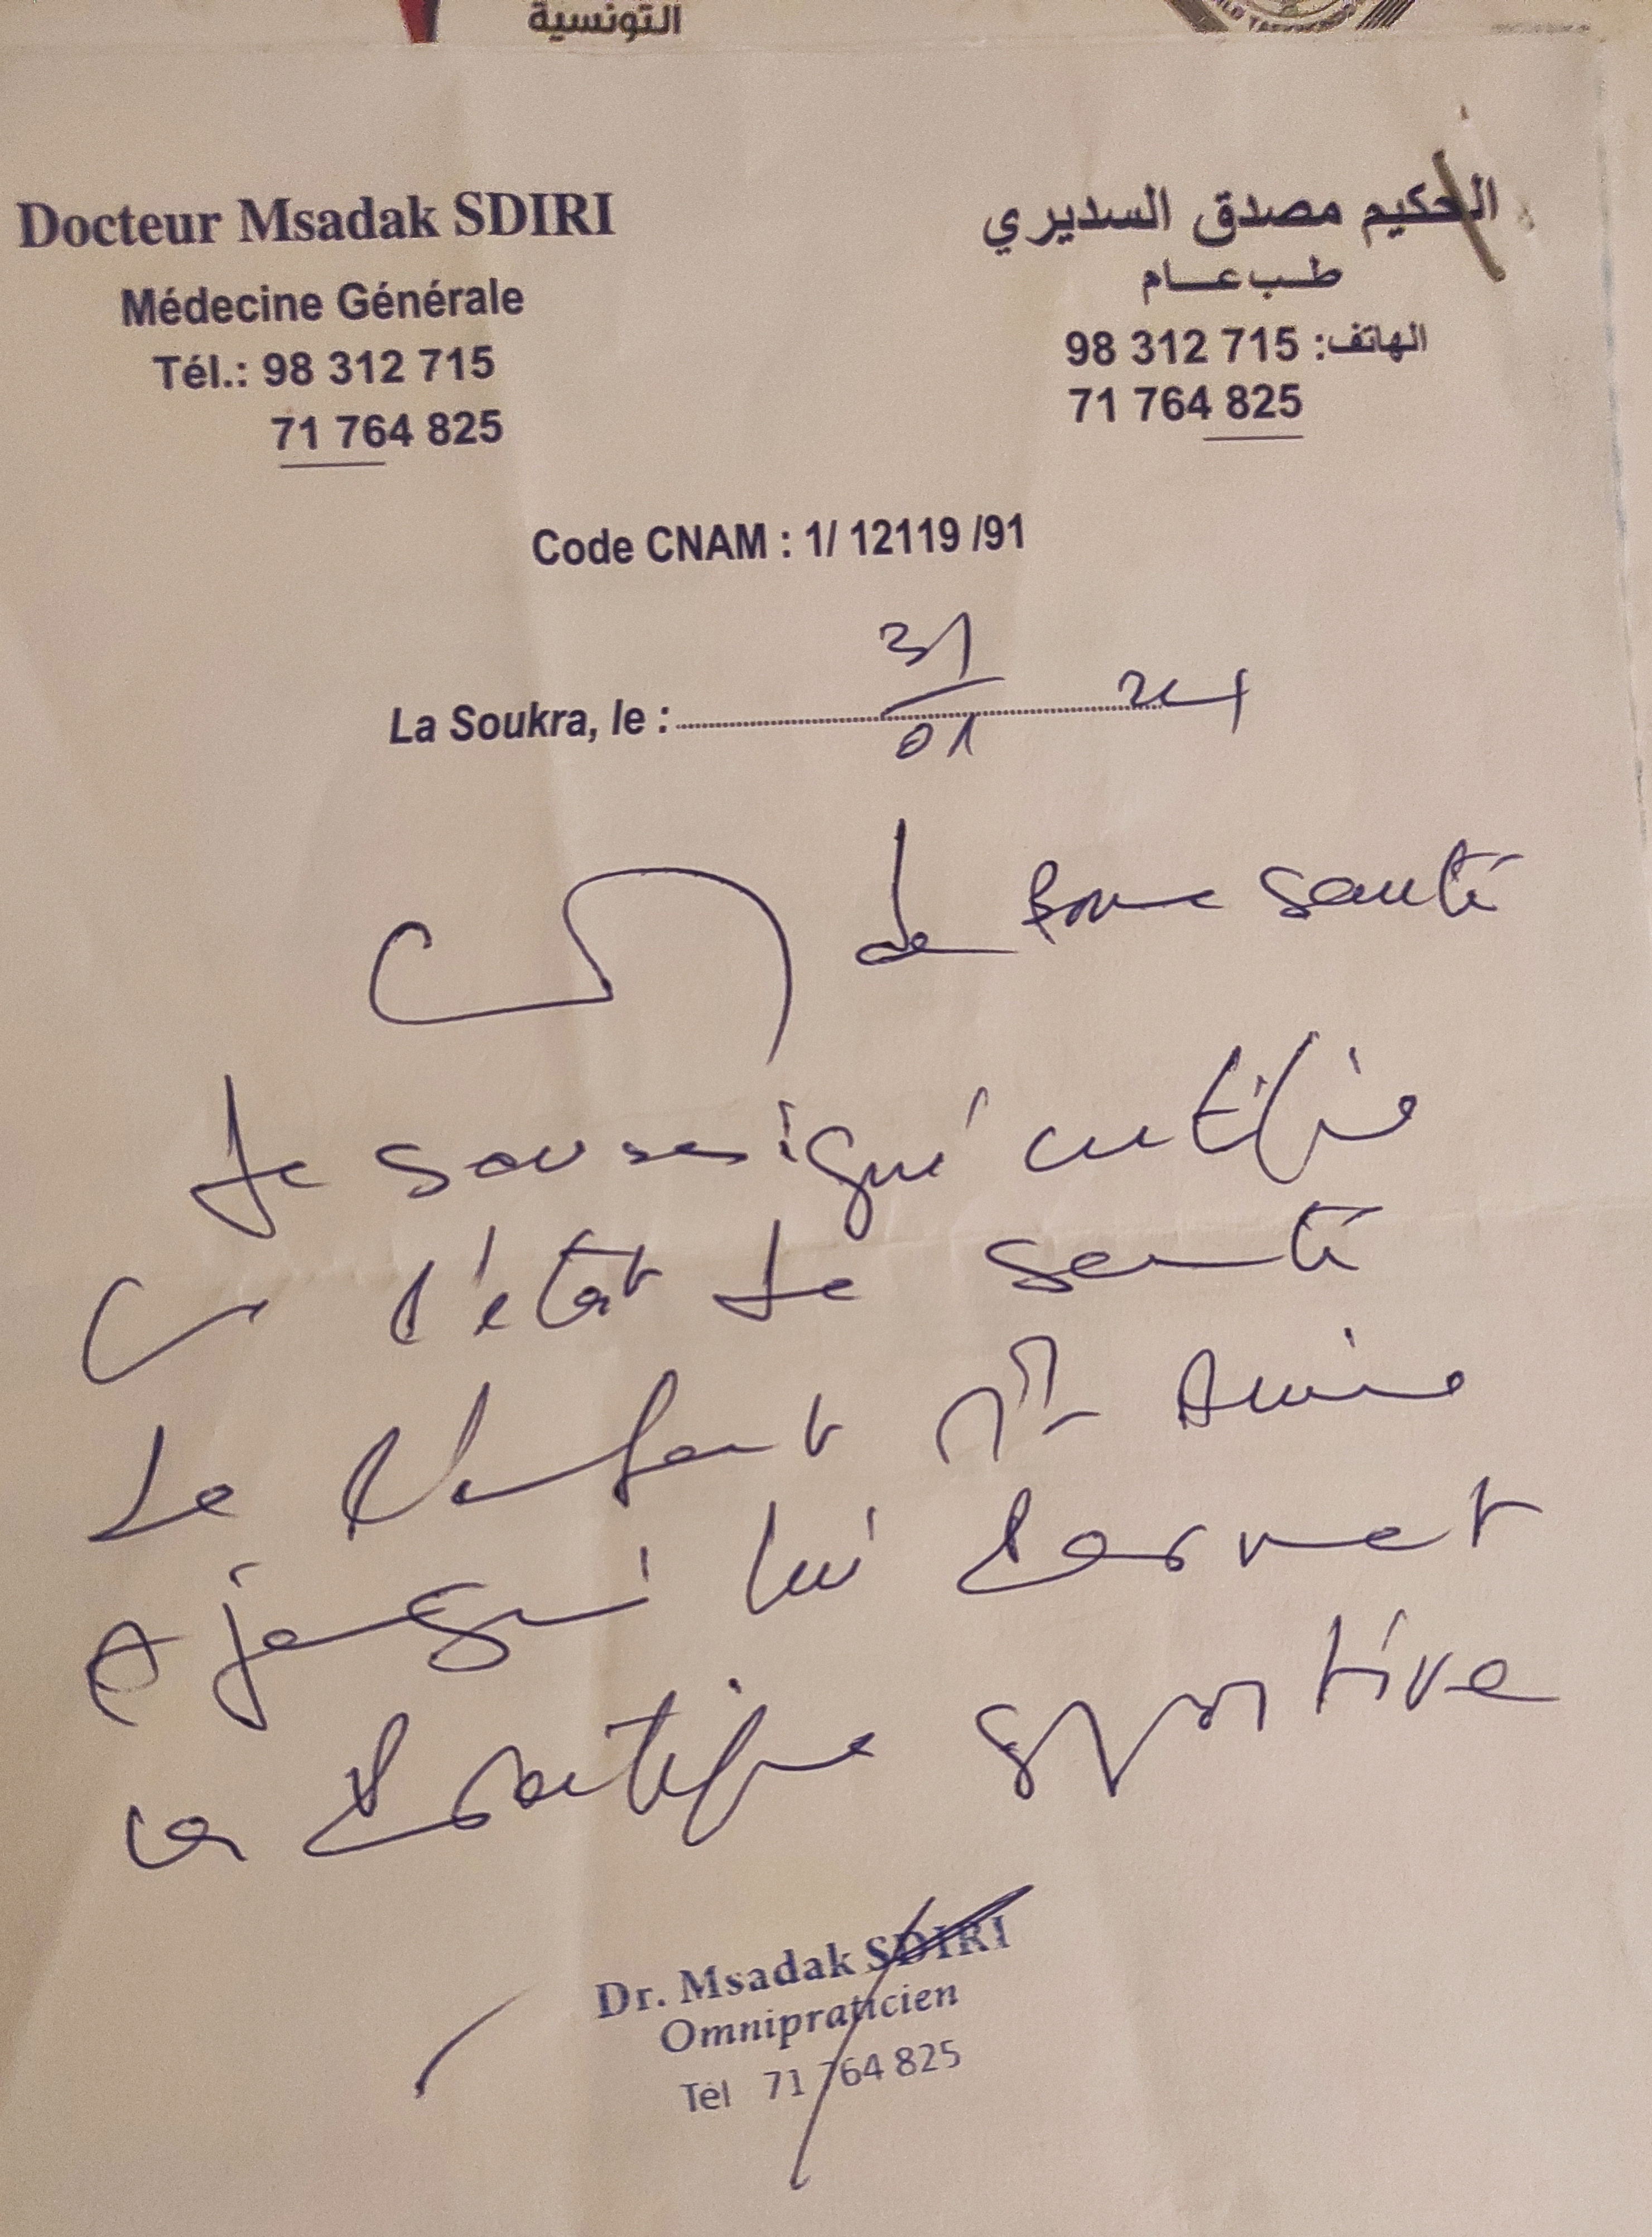 التونسية
Docteur Msadak SDIRI
Médecine Générale
Tél.: 98 312 715
71 764 825
الحكيم مصدق السديري
طب عام
الهاتف: 98 312 715
71 764 825
Code CNAM : 1/ 12119 /91
La Soukra, le : 31/01 24
de Bonne santé
Je soussigné certifie
l'état de santé
de l'enfant Md Amine
lui permet
la pratique sportive
Dr. Msadak SDIRI
Omnipraticien
Tél 71 764 825